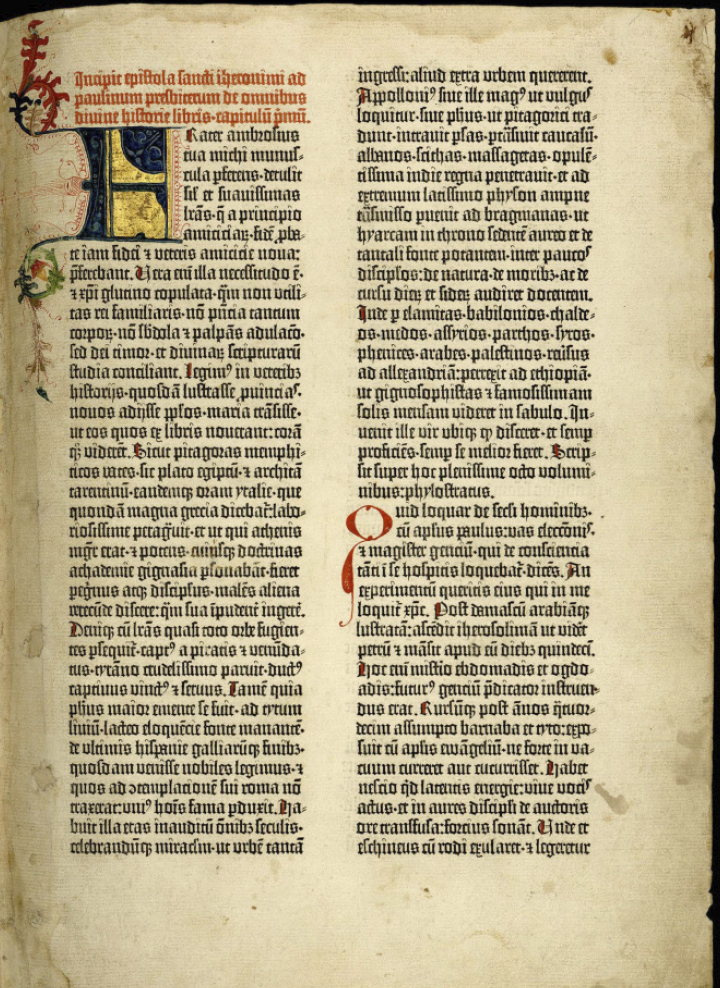 Incipit epistola sancti iheronimi ad
paulinum presbiterum de omnibus
divine historie libris·capitulū p̄mū.
Frater ambrosius
tua michi munus-
cula p̱ferens·detulit
sil̄ et suauissimas
lr̄as·q̄ a principio
amiciciaꝝ·fidē ꝓba-
te iam fidei ⁊ veteris amicicie noua:
p̄ferebant. Vera em̄ illa necessitudo ē·
⁊ xp̄i glutino copulata·qm̄ non vtili-
tas rei familiaris·nō pn̄cia tantum
corpoꝝ·nō sb̄dola ⁊ palpās adulac̄o·
sed dei timor·et diuinaꝝ scripturarū
studia conciliant. Legimꝰ in veteribꝫ
historijs·quosdā lustrasse ꝓuinciaˢ·
nouos adijsse pp̄los·maria trāsisse·
ut eos quos ex libris nouerant:corā
qꝫ viderēt. Sicut pitagoras memphi-
ticos vates·sic plato egiptū·⁊ architā
tarentinū·eandemqꝫ oram ytalie·que
quondā magna grecia dicebat᷑:labo-
riosissime peragͬuit·et ut qui athenis
mgr̄ erat·⁊ potens·cuiusqꝫ doctrinas
achademie gignasia ꝑsonabāt·fieret
peg̓nus atqꝫ discipl̄us·malēs aliena
verecūde discere:qm̄ sua īpudent᷑ ingere᷑.
Deniqꝫ cū lr̄as quasi toto orbe fugien-
tes ꝑsequit᷑·captꝰ a piratis ⁊ venūda-
tus·tyrāno crudelissimo paruit·ductꝰ
captiuus vinctꝰ ⁊ seruus. Tamē quia
ph̄us maior emente se fuit·ad tytum
liuiū·lacteo eloquēcie fonte manantē·
de vltimis hispanie galliarūqꝫ finibꝫ·
quosdam venisse nobiles legimus·⁊
quos ad ꝯtemplacionē sui roma nō
traxerat:vniꝰ hoīs fama ꝑduxit. Ha-
buit illa etas inauditū ōnibꝫ seculis·
celebrandūqꝫ miracl̄m·ut vrbē tantā
ingressi:aliud extra vrbem quererent.
Appolloniꝰ siue ille magꝰ ut vulgꝰ
loquitur·siue ph̄us·ut pitagorici tra-
dunt·intrauit ꝑsas·ꝑtͣnsiuit caucasū·
albanos·scithas·massagetas·opulē-
tissima indie regna penetrauit·et ad
extremum latissimo physon ampne
trāsmisso ꝑuenit ad bragmanas·ut
hyarcam in throno sedentē aureo et de
tantali fonte potantem·inter paucoˢ
discipl̄os:de natura·de moribꝫ·ac de
cursu dieꝝ et sideꝝ audiret docentem.
Inde ꝑ elamitas·babilonios·chalde-
os·medos·assyrios·parthos·syros·
phenices·arabes·palestinos·reūsus
ad allexandriā:perrexit ad ethiopiā·
ut gignosophistas ⁊ famosissimam
solis mensam videret in sabulo. In-
uenit ille vir vbiqꝫ qͦ disceret·et semꝑ
proficiēs·semꝑ se melior fieret. Scrip-
sit super hoc plenissime octo volumi-
nibus:phylostratus.
Quid loquar de secl̄i hominibꝫ·
cū apl̄us paulus:vas eleccōniˢ·
⁊ magister genciū·qui de consciencia
tāti ī se hospitis loquebat᷑·dicēs. An
experimentū queritis eius qui in me
loquit᷑ xp̄c. Post damascū arabiāqꝫ
lustratā:ascēdit iherosolimā ut vidēt
petrū ⁊ māsit apud eū diebꝫ quindeci.
Hoc em̄ misterio ebdomadis et ogdo-
adis:futurꝰ genciū p̄dicator instruen-
dus erat. Rursūqꝫ post ānos qt̄uor-
decim assumpto barnaba et tyto:expo-
suit cū apl̄is ewāgeliū·ne forte in va-
cuum curreret aut cucurrisset. Habet
nescio qd̄ latentis energie:viue vociˢ
actus·et in aures discipl̄i de auctoris
ore transfusa:forcius sonat᷑. Vnde et
eschineus cū rodi exularet·⁊ legeretur